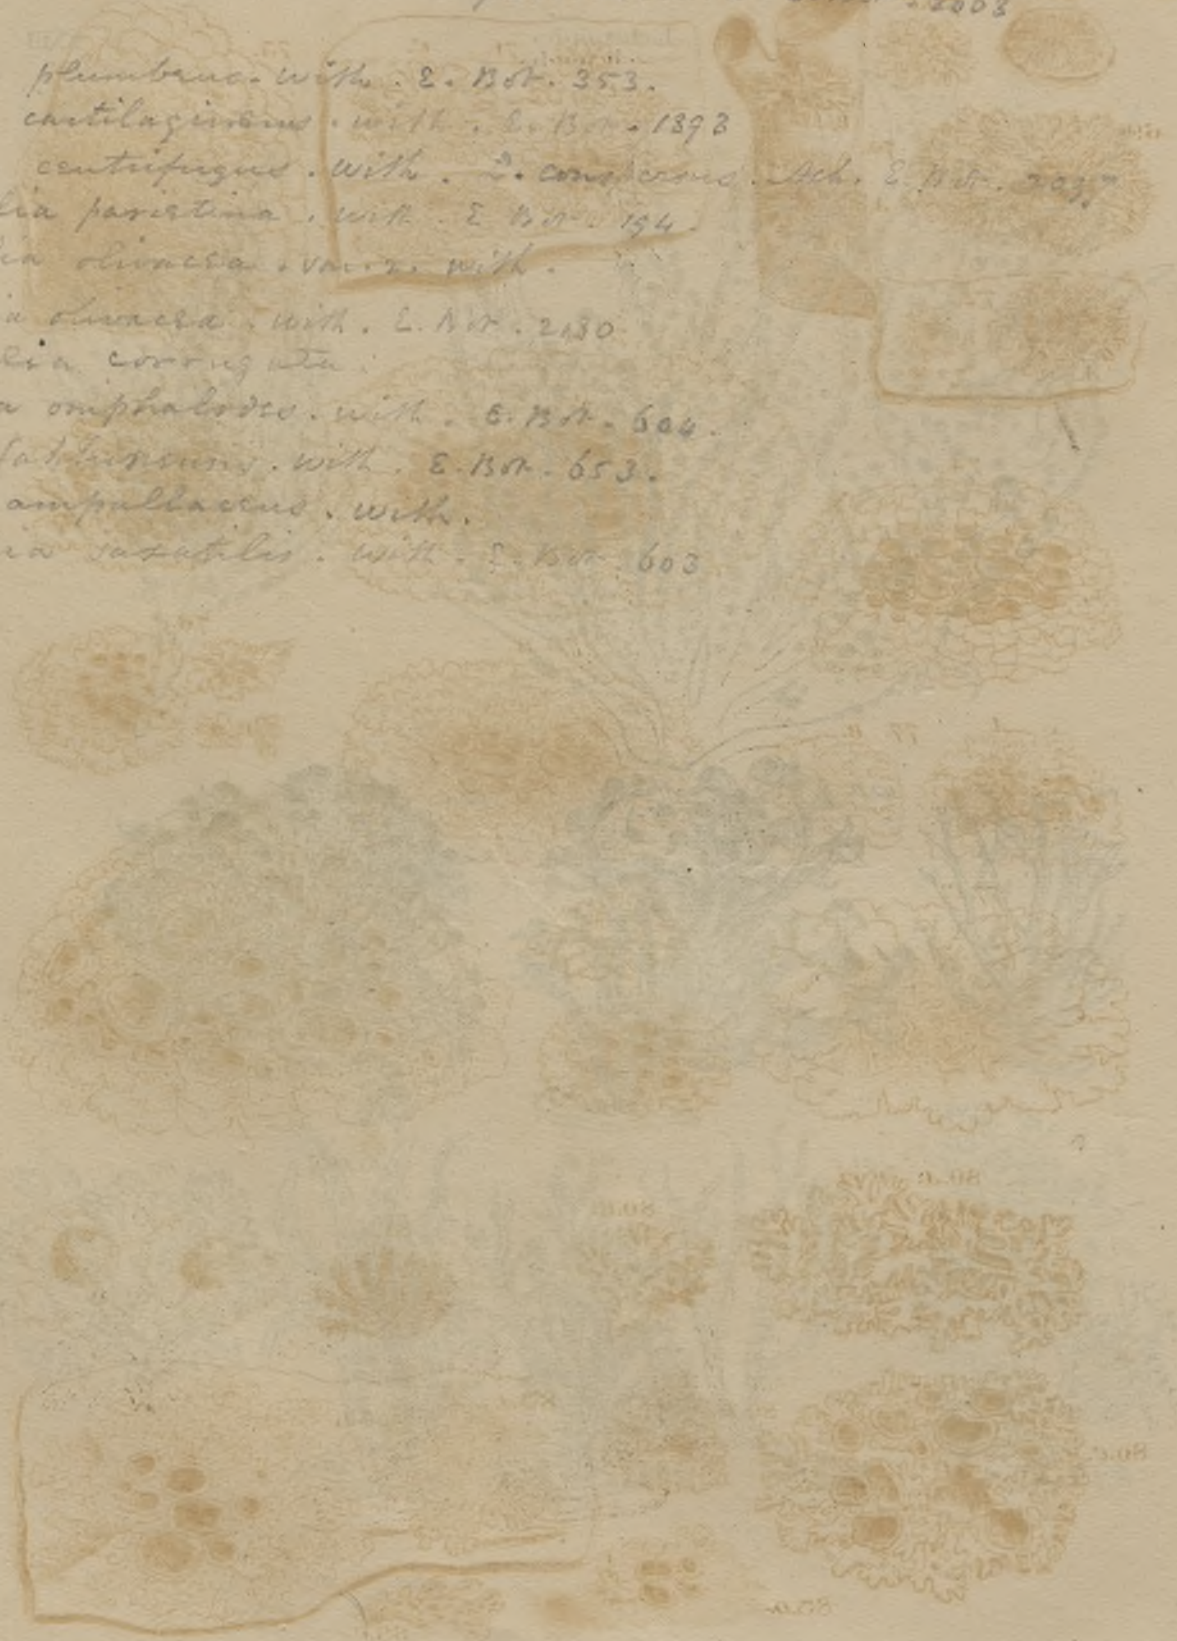 2003
plumbeus. with. E. Bot. 353.
cartilagineus. with. E. Bot. 1393
centrifugus. with. L. conspersus. Ach. E. Bot.
lia parietina. with. E Bot. 194.
lia olivacea. var. 2. with.
a olivacea. with. E. Bot. 2180
lia corrugata.
a omphalodes. with. E. Bot. 604.
fahlunensis. with. E. Bot. 653.
ampullaceus. with.
ia saxatilis. with. E. Bot. 603